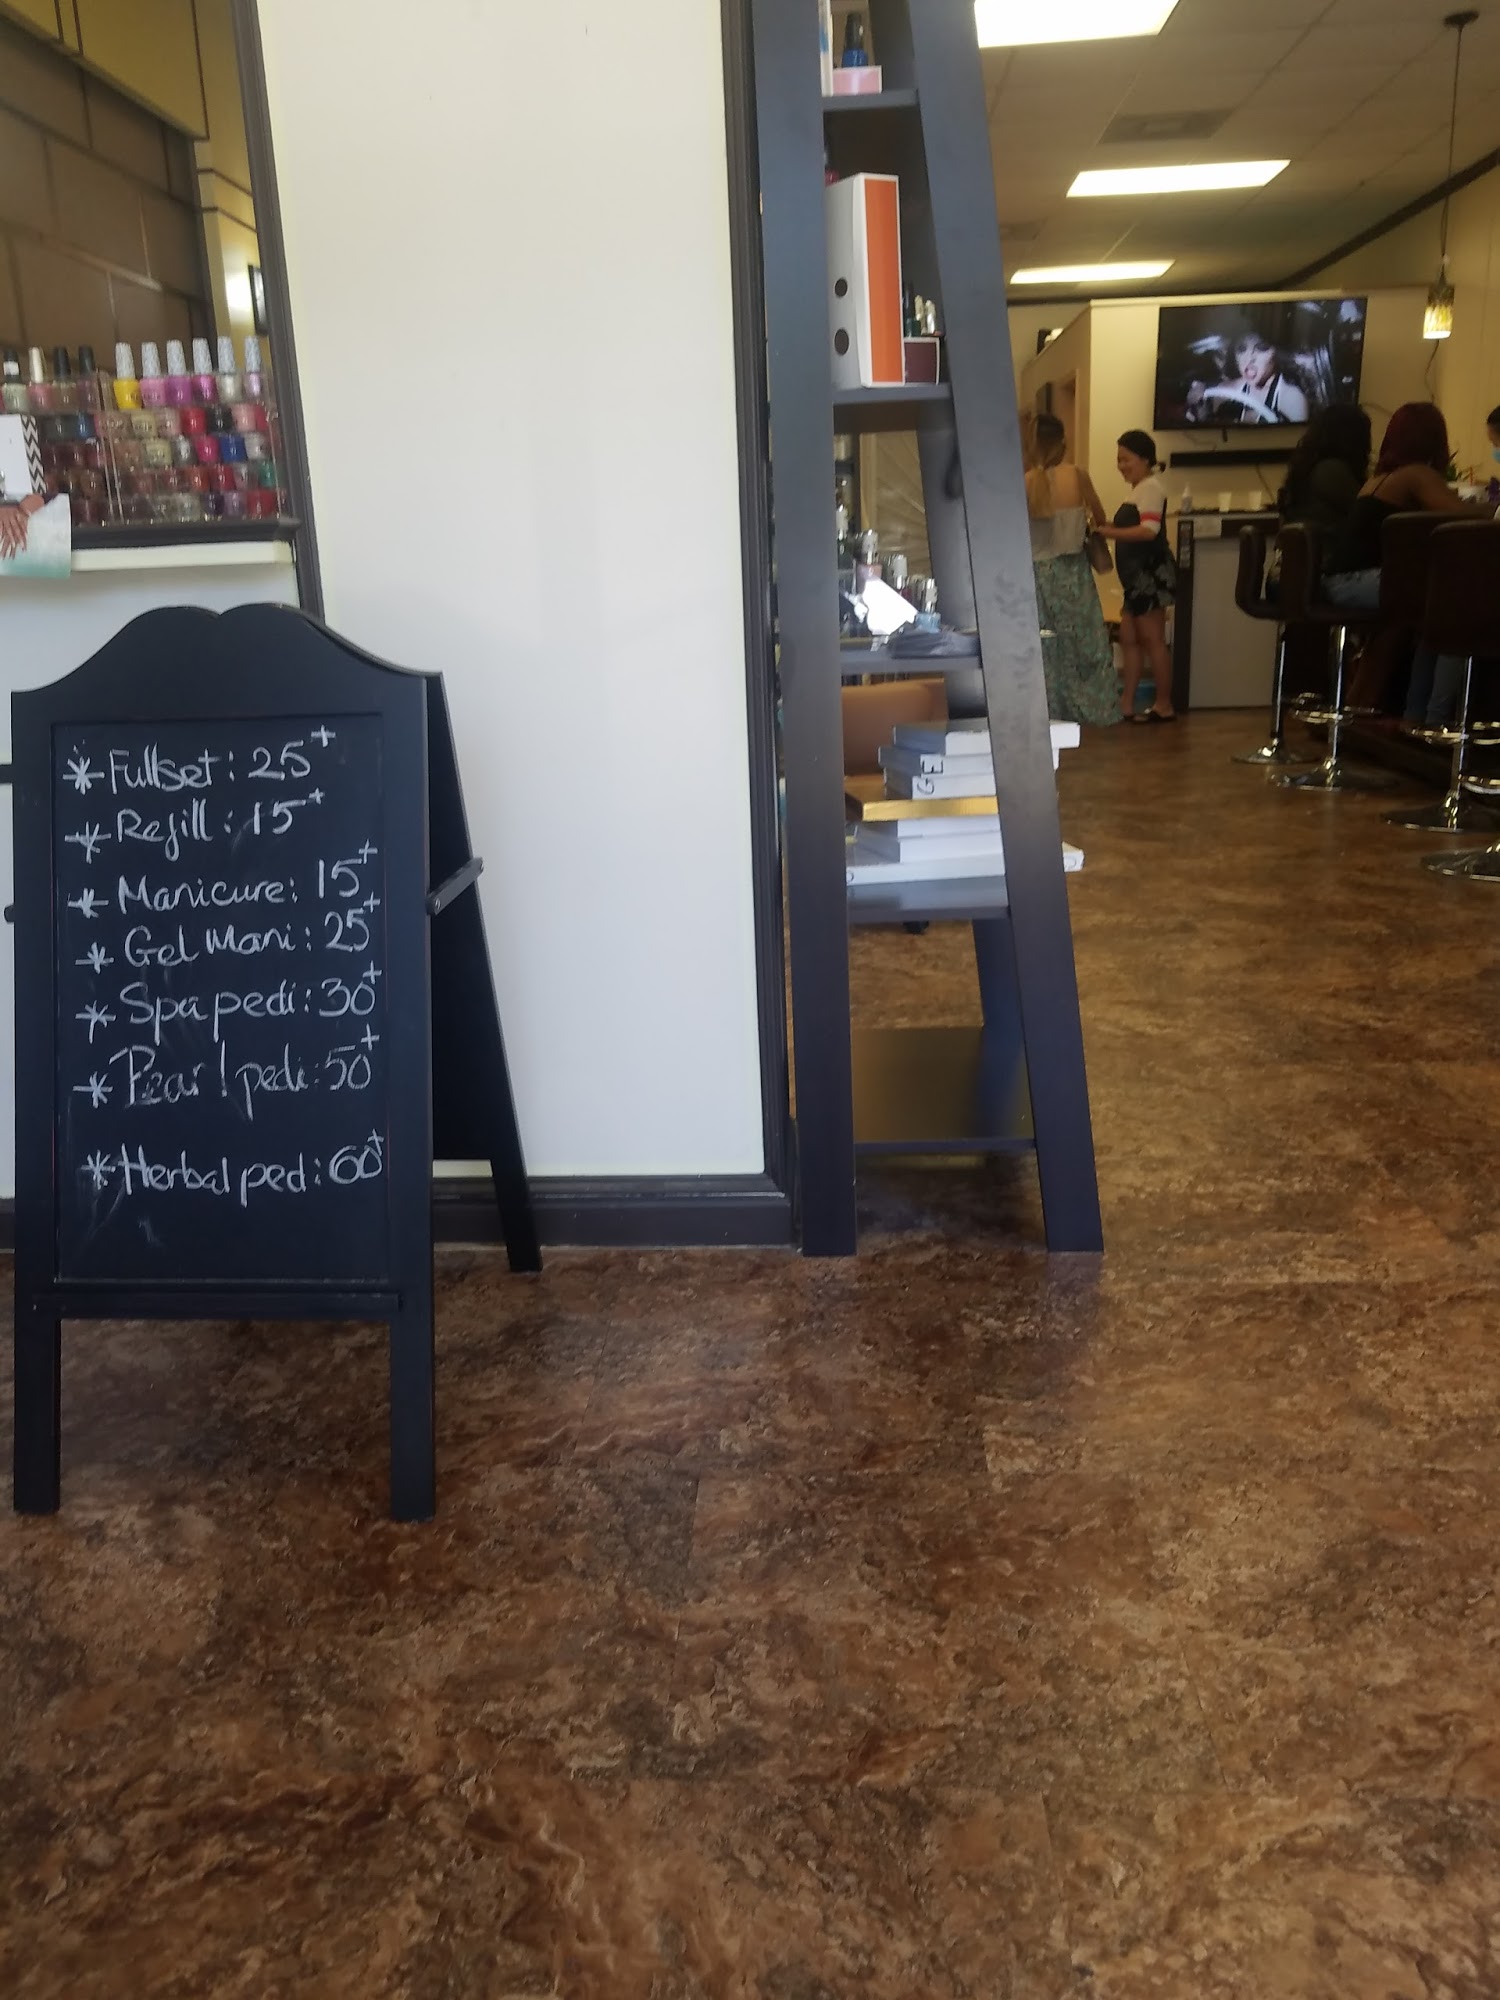 * Fullset: 25+
* Refill: 15+
* Manicure: 15+
* Gel Mani: 25+
* Spa pedi: 30+
* Pearl pedi: 50+
* Herbal ped: 60+
GE